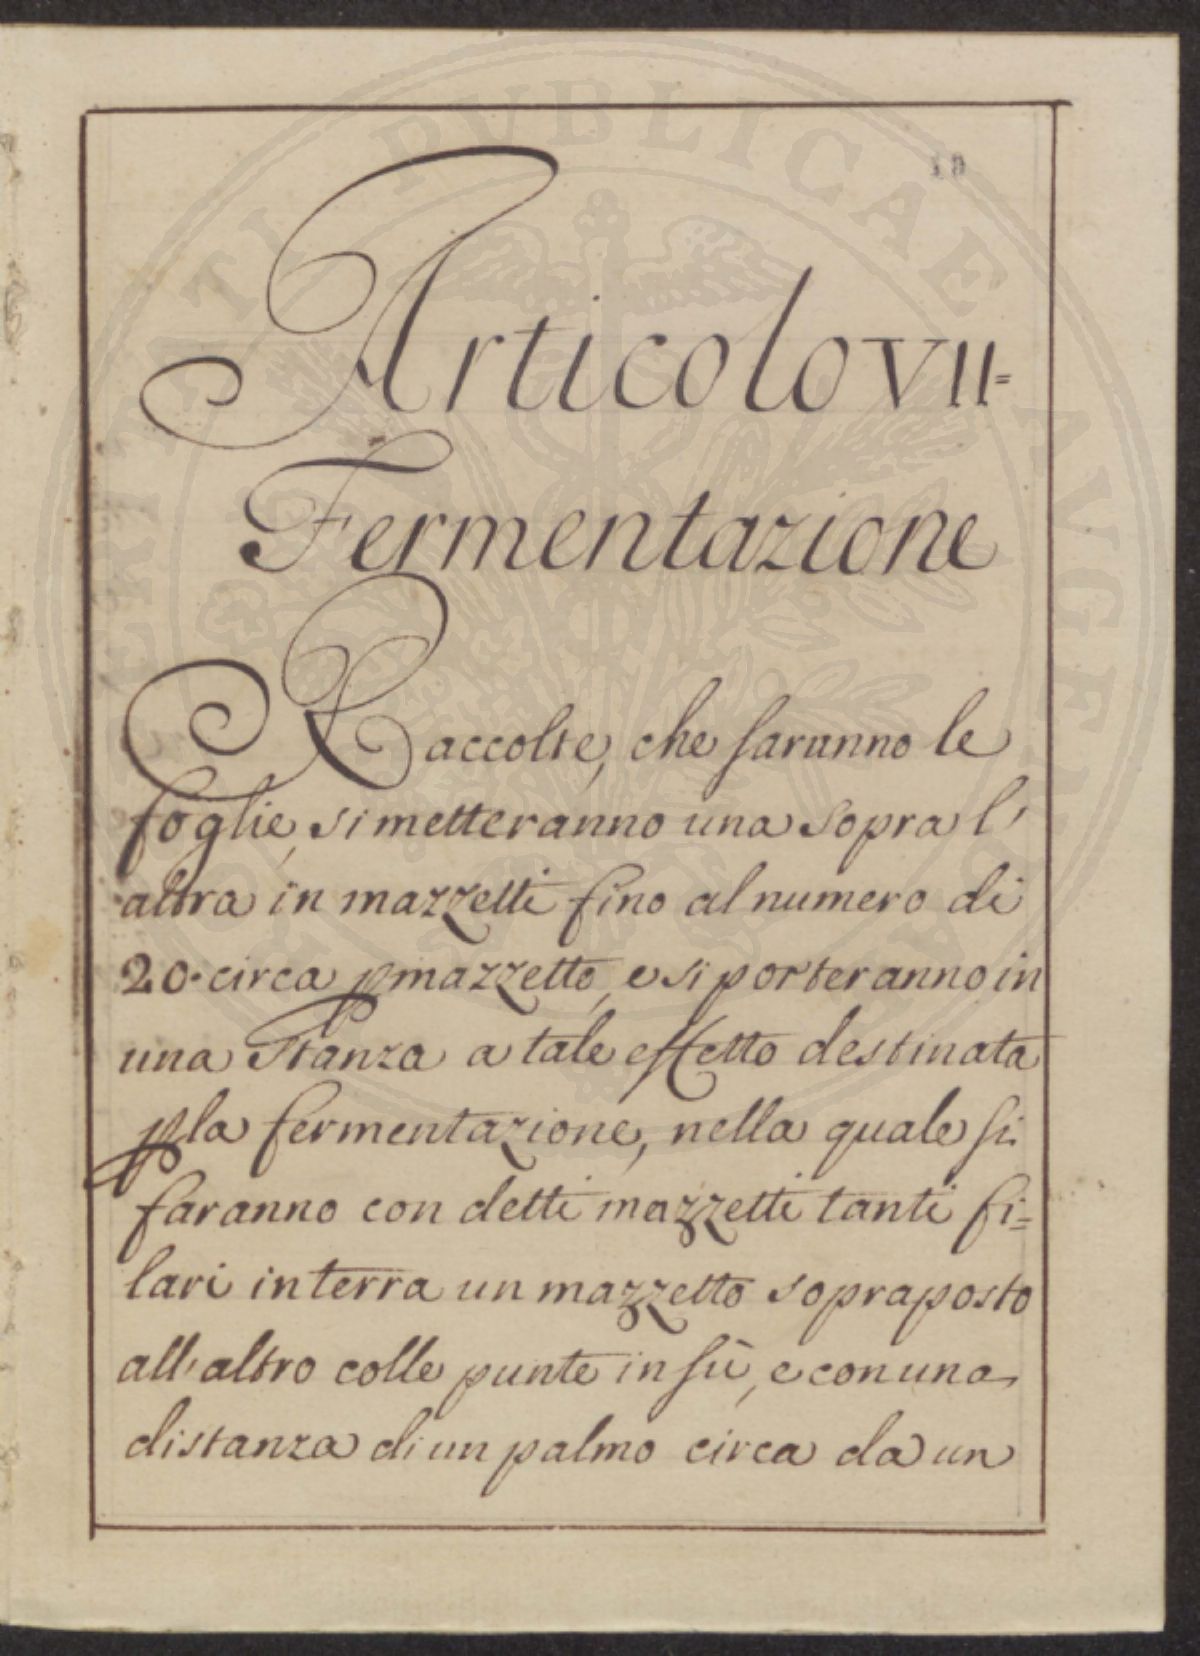 10
Articolo VII=
Fermentazione
Raccolte, che saranno le
foglie, si metteranno una sopra l'
altra in mazzetti fino al numero di
20. circa p mazzetto, e si porteranno in
una Stanza a tale effetto destinata
p la fermentazione, nella quale si
faranno con detti mazzetti tanti fi=
lari in terra un mazzetto sopraposto
all'altro colle punte in sù, e con una
distanza di un palmo circa da un